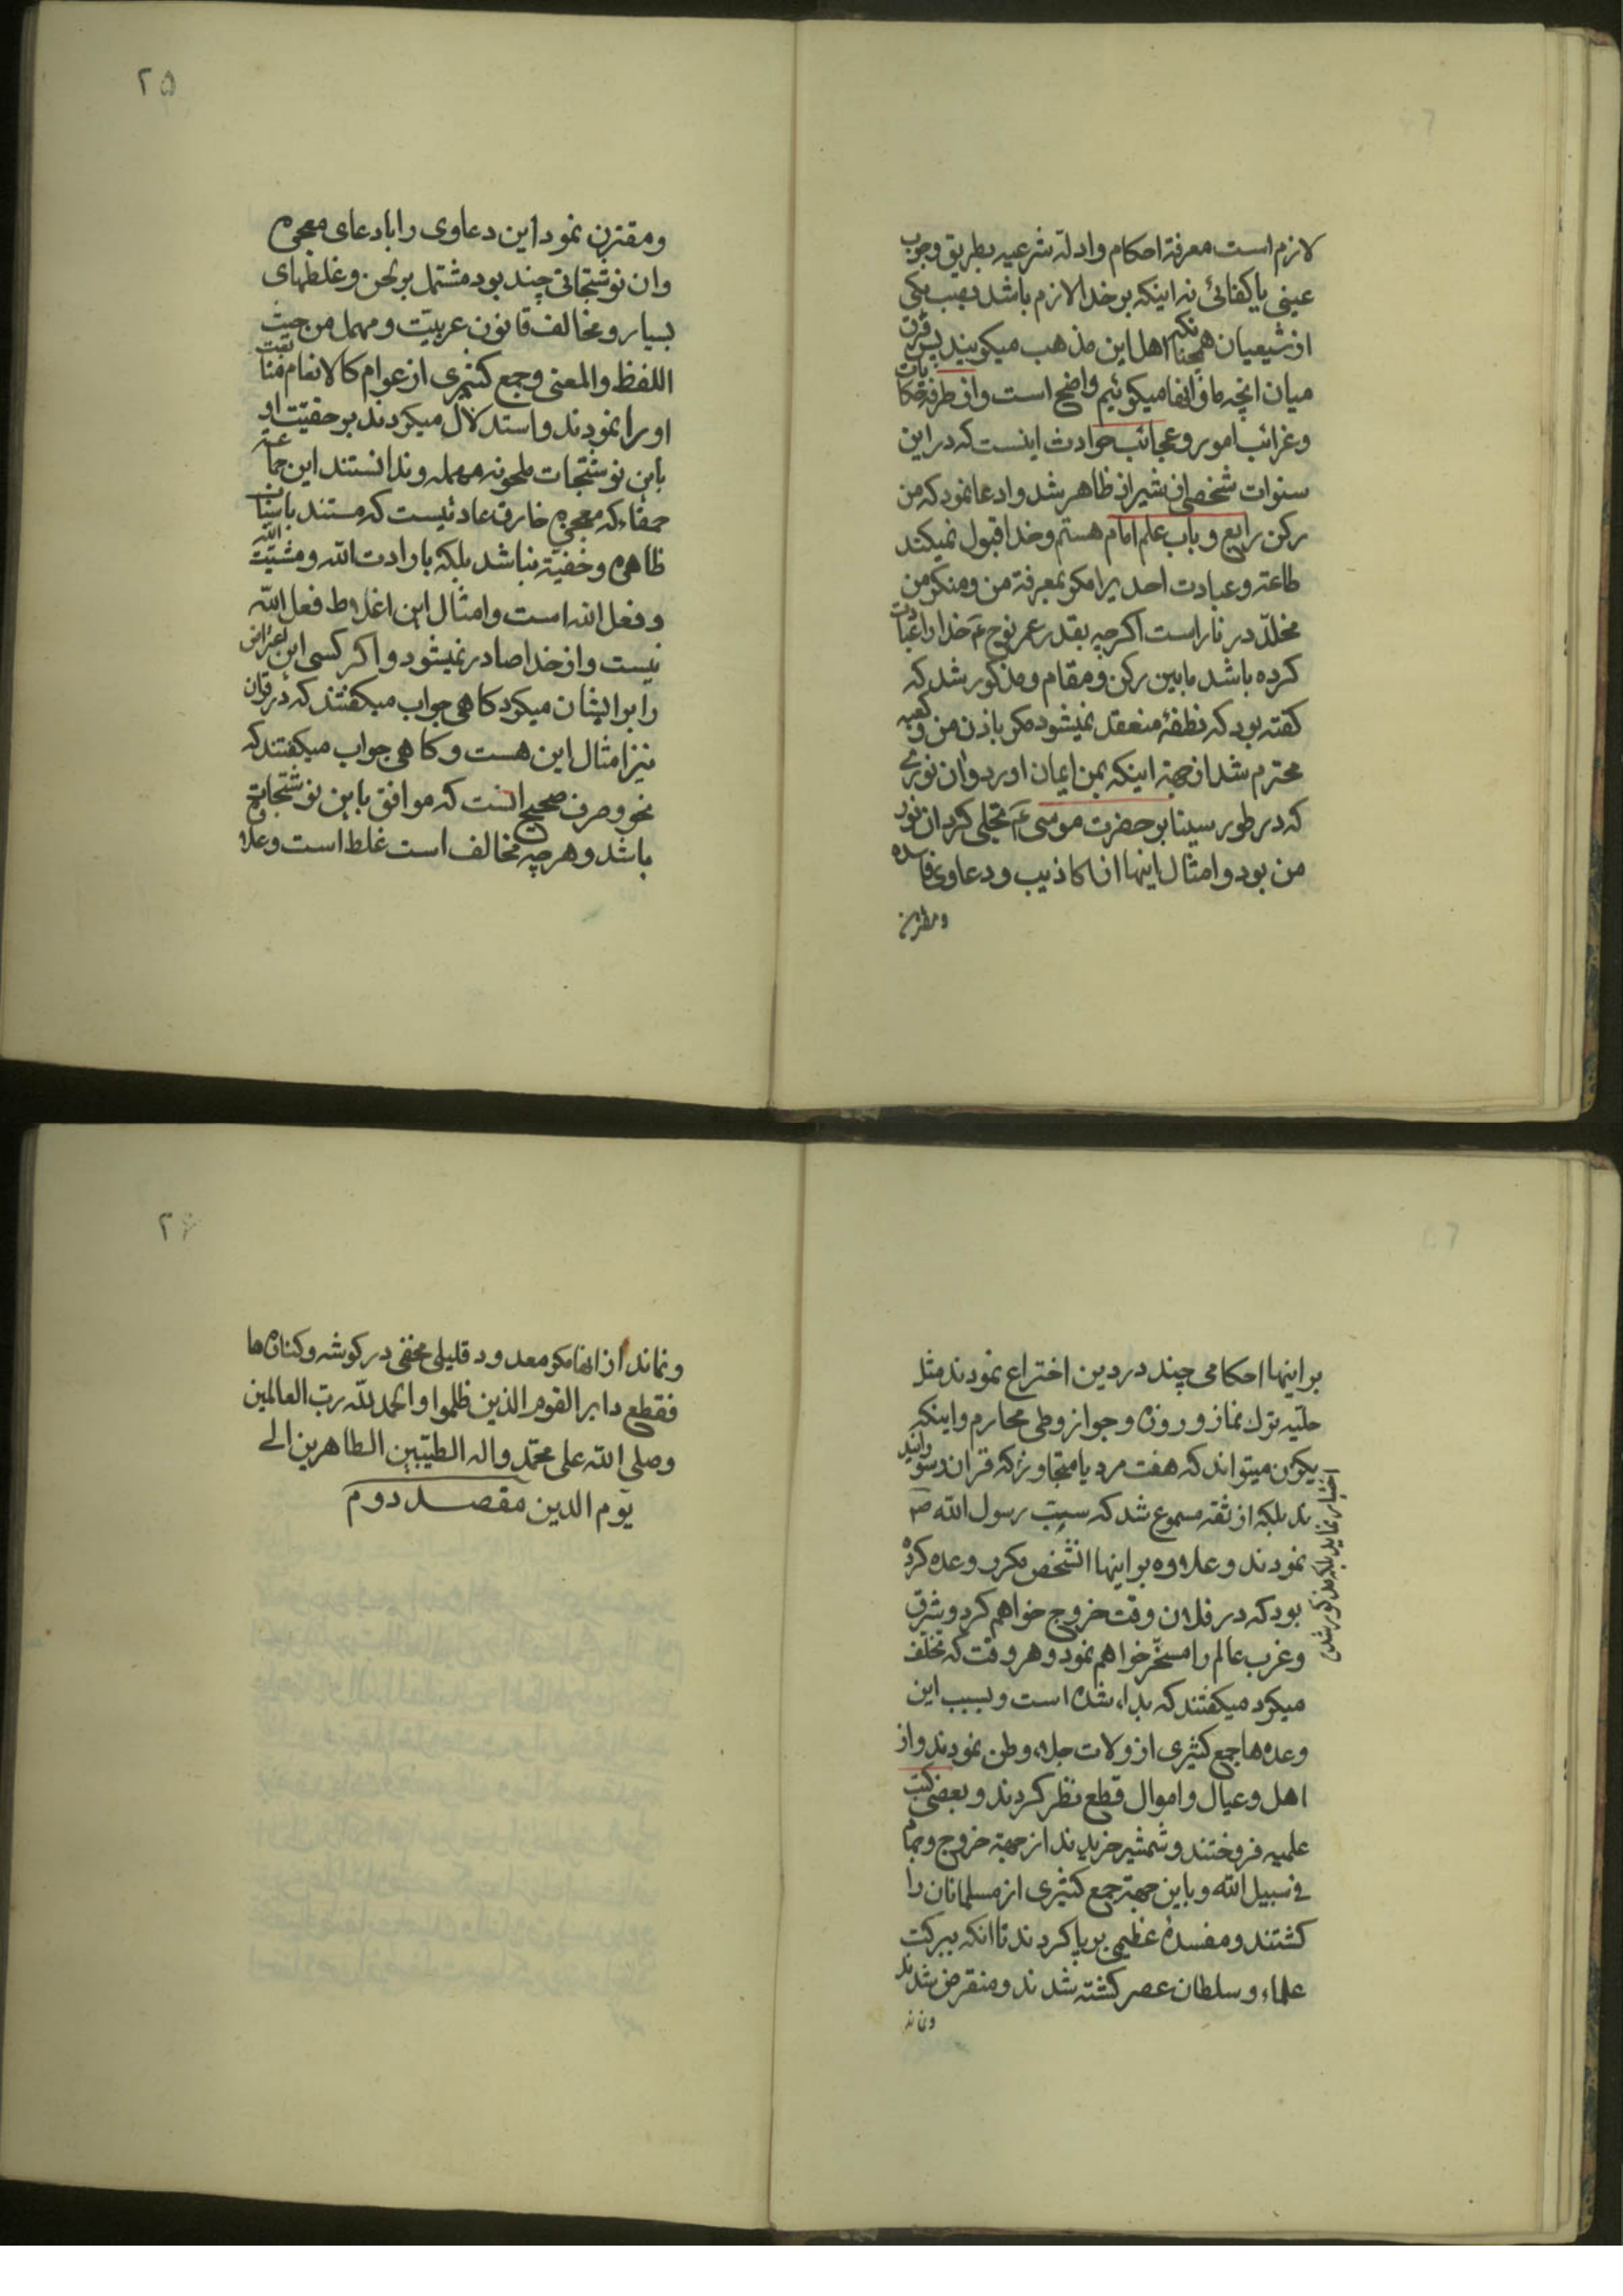 لازم است معرفة احکام و ادلّه شرعیه بطریق وجوب
عینی یا کفائی نه اینکه بر خدا لازم باشد نصب یکی
از شیعیان همچنانکه اهل این مذهب میکویند پس فرق
میان انچه ما و انها میکوئیم واضح است و از طرفه حکایات
و غرائب امور و عجائب حوادث اینست که در این
سنوات شخصی از شیراز ظاهر شد و ادعا نمود که من
رکن رابع و باب علم امام هستم و خدا قبول نمیکند
طاعة و عبادت احدیرا مکر بمعرفة من و منکر من
مخلّد در نار است اکرچه بقدر عمر نوح ع خدا را عبادت
کرده باشد ما بین رکن و مقام و مذکور شد که
کفته بود که نطفهٔ منعقد نمیشود مکر باذن من و کعبه
محترم شد از جهة اینکه بمن ایمان اورد و ان نوری
که در طور سینا بر حضرت موسی ع تجلی کرد ان نور
من بود و امثال اینها از اکاذیب و دعاوی فاسده
و مقترن
۲۵
و مقترن نمود این دعاوی را با دعای معجزه
و ان نوشتجاتی چند بود مشتمل بر لحن و غلطهای
بسیار و مخالف قانون عربیّت و مهمل من حیث
اللفظ و المعنی و جمع کثیری از عوام کالانعام متابعت
او را نمودند و استدلال میکردند بر حقیّت او
باین نوشتجات ملحونه مهمله و ندانستند این جماعة
حمقاء که معجزه خارق عادتیست که مستند باسباب
ظاهره و خفیّة نباشد بلکه بارادت الله و مشیّت الله
و فعل الله است و امثال این اغلاط فعل الله
نیست و از خدا صادر نمیشود و اکر کسی این اعتراض
را بر ایشان میکرد کاهی جواب میکفتند که در قران
نیز امثال این هست و کاهی جواب میکفتند که
نحو و صرف صحیح انست که موافق باین نوشتجات
باشد و هر چه مخالف است غلط است و علاوه
بر اینها احکامی چند در دین اختراع نمودند مثل
حلّیه ترک نماز و روزه و جواز وطی محارم و اینکه
یکزن میتواند که هفت مرد یا متجاوز
اختیار نماید بلکه مذکور شد
که قران را سوزانیدند بلکه از ثقه مسموع شد که سبّ رسول الله ص
نمودند و علاوه بر اینها انشخص مکرر وعده کرده
بود که در فلان وقت خروج خواهم کرد و شرق
و غرب عالم را مسخّر خواهم نمود و هر وقت که تخلّف
میکرد میکفتند که بداء شده است و بسبب این
وعده‌ها جمع کثیری از ولات جلاء وطن نمودند و از
اهل و عیال و اموال قطع نظر کردند و بعضی کتب
علمیه فروختند و شمشیر خریدند از جهة خروج و جهاد
فی سبیل الله و باین جهة جمع کثیری از مسلمانان را
کشتند و مفسدهٔ عظیمی بر پا کردند تا انکه ببرکت
علماء و سلطان عصر کشته شدند و منقرض شدند
و نماند
۲۶
و نماند از انها مکر معدود قلیلی مخفی در کوشه و کناره‌ها
فقطع دابر القوم الذین ظلموا و الحمد لله ربّ العالمین
و صلی الله علی محمّد و اله الطیّبین الطاهرین الی
یوم الدین مقصد دوم